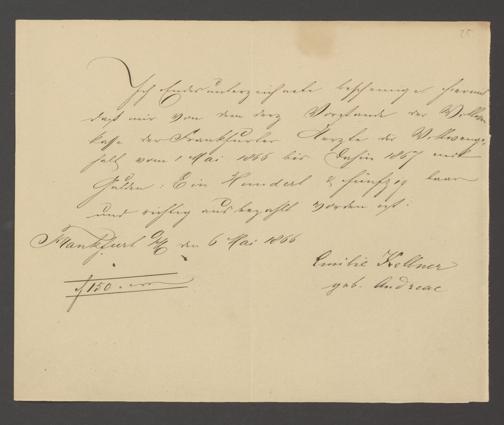 25
Ich Endesunterzeichnete bescheinige hiermit
daß mir von dem derz Vorstande der Wittwen
kasse der Frankfurter Aerzte der Wittwenge-
halt vom 1 Mai 1866 bis dahin 1867 mit
Gulden: Ein Hundert & fünfzig baar
und richtig ausbezahlt worden ist.
Frankfurt a/M den 6 Mai 1866
Emilie Kellner
f 150.
geb. Andreae